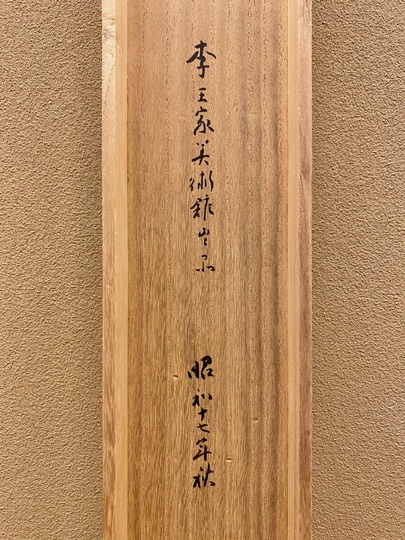 李王家美術館出品
昭和十七年秋